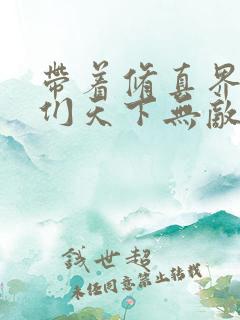 帶着脩真界
们天下無敵
錢世超
未经同意禁止转载